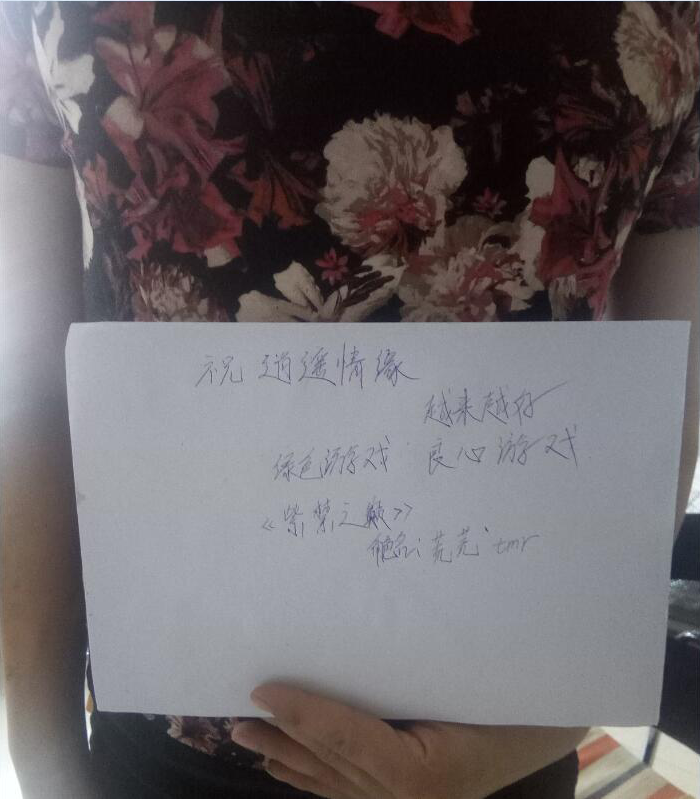 祝逍遥情缘
越来越好
绿色游戏 良心游戏
《紫禁之巅》
tmr